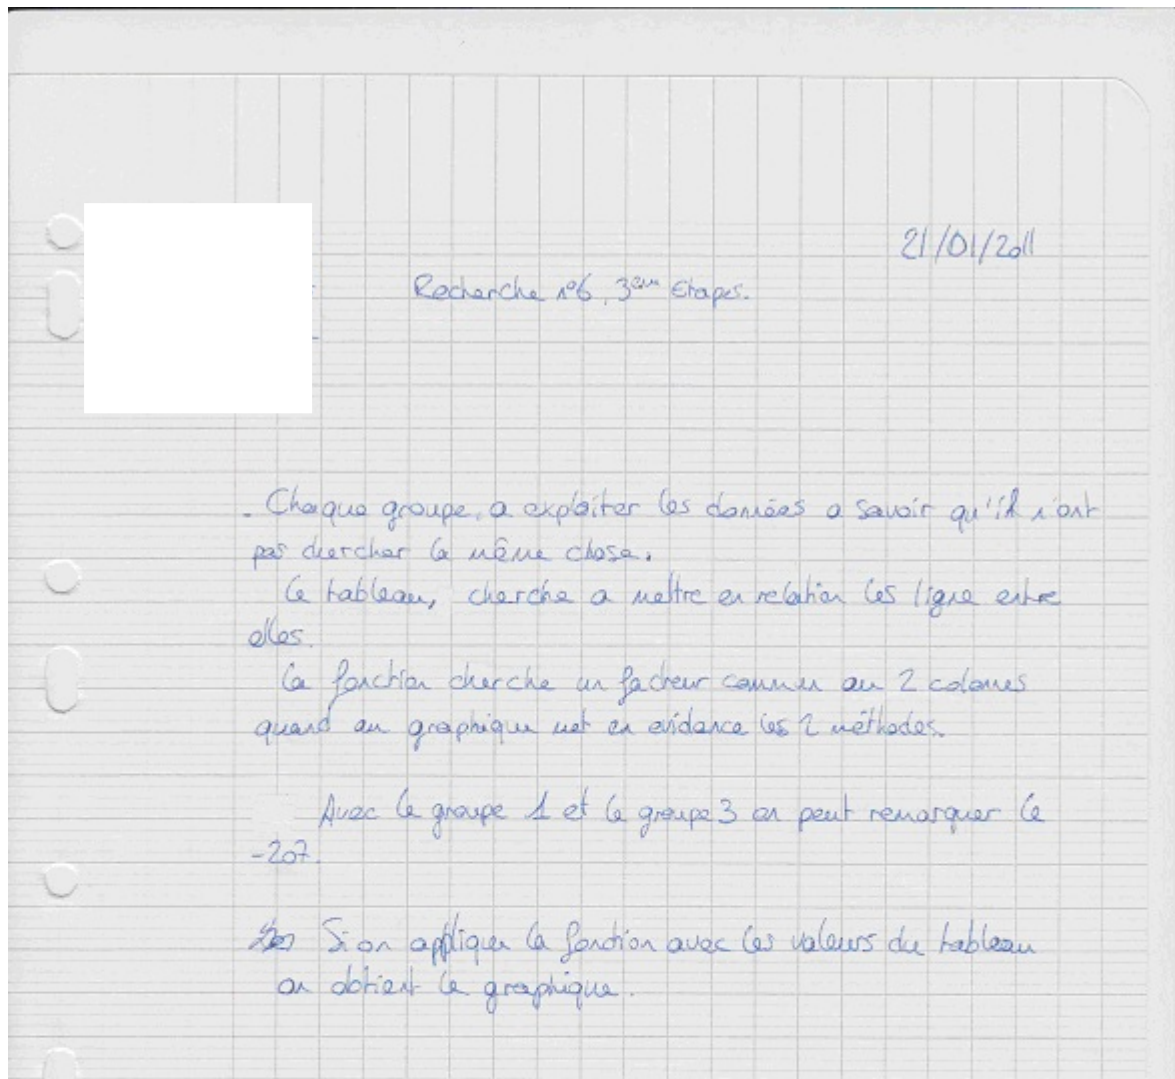 21/01/2011
Recherche n°6, 3eme Etapes.
. Chaque groupe, a exploiter les données a savoir qu'il n'ont
pas chercher la même chose.
Le tableau, cherche a mettre en relation les ligne entre
elles.
La fonction cherche un facteur commun au 2 colones
quand au graphique met en evidance les 2 méthodes.
Avec le groupe 1 et le groupe 3 on peut remarquer le
-207.
Si on appliquer la fonction avec les valeurs du tableau
on obtient le graphique.